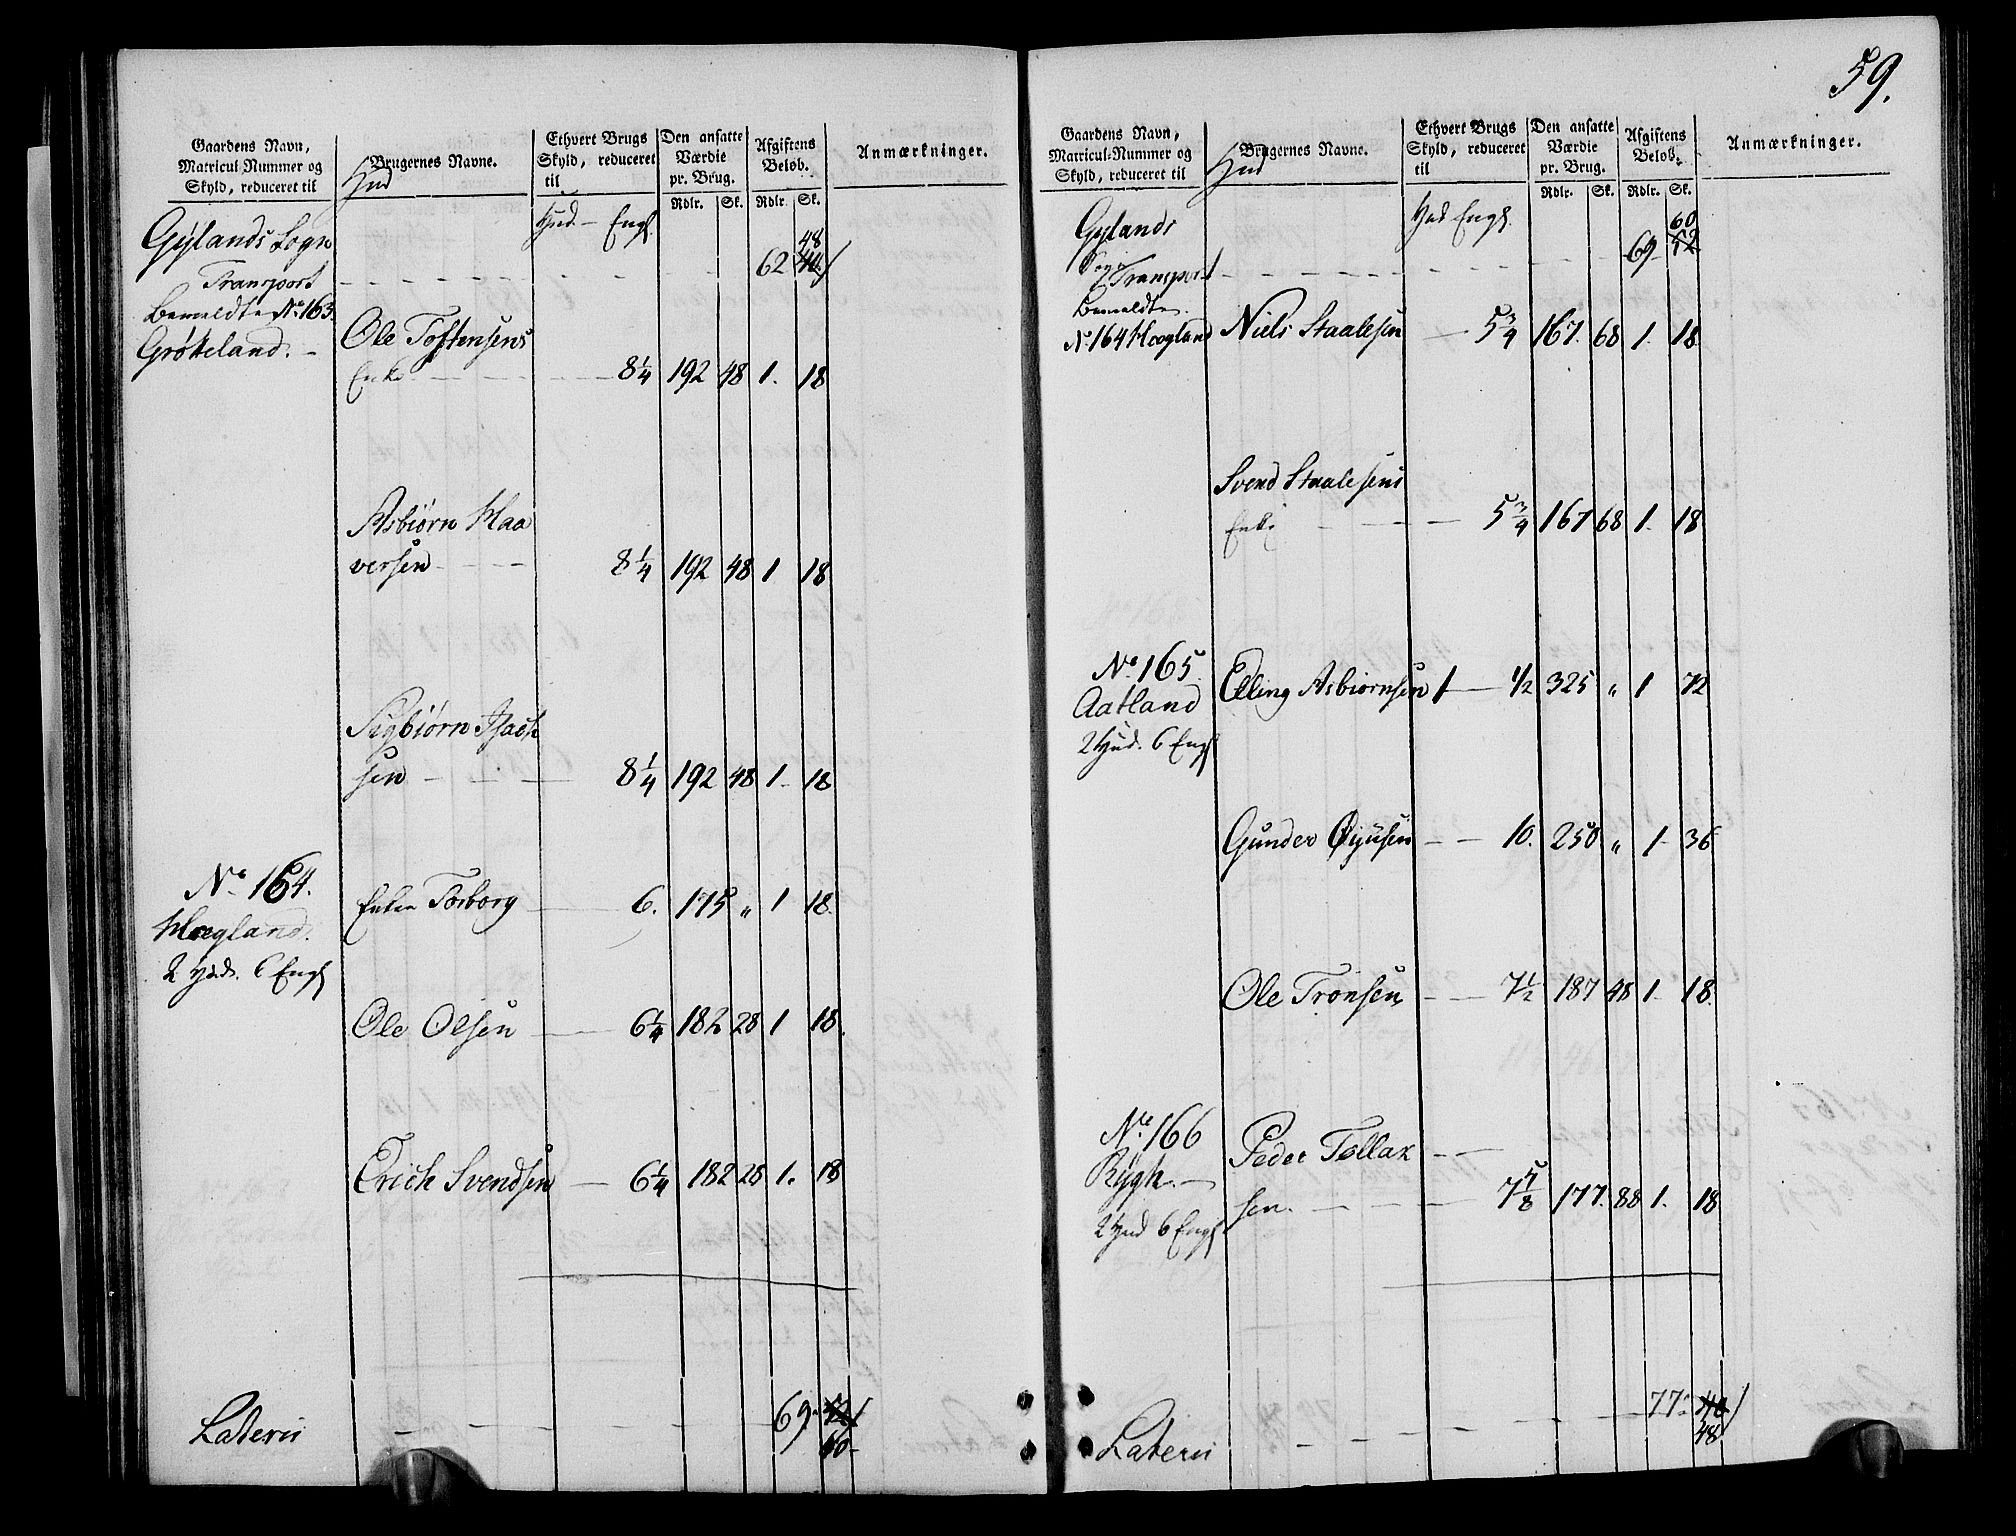 Gaardens Navn,
Matricul-Nummer og
Skyld, reduceret til
Hud
Brugernes Navne.
Ethvert Brugs
Skyld, reduceret
til
Den ansatte
Værdie
pr. Brug.
Rdlr. Sk.
Afgiftens
Beløb.
Rdlr. Sk.
Anmærkninger.
Hud - Engl
Gÿlands Sogn
Transport 62 48
Bemeldte No 163.
Grøteland. - Ole Tostensens
Enke 8 1/4 192 48 1. 18
Asbiørn Haa
versen 8 1/4 192 48 1 18
Sigbiørn Isach
sen 8 1/4 192 48 1 18
No 164.
Hoegland.
2 Hud. 6 Engl
Enken Torborg 6. 175 " 1 18.
Ole Olsen 6 1/4 182 28 1 18.
Erich Svendsen 6 1/4 182 28 1. 18
Lateris 69. 60
59.
Gaardens Navn,
Matricul-Nummer og
Skyld, reduceret til
Hud
Brugernes Navne.
Ethvert Brugs
Skyld, reduceret
til
Den ansatte
Værdie
pr. Brug.
Rdlr. Sk.
Afgiftens
Beløb.
Rdlr. Sk.
Anmærkninger.
Hud Engl.
Gylands
Sogn
Transport 69 60
Bemeldte.
No 164 Hoegland Niels Staalesen 5 3/4 167. 68 1. 18
Svend Staalesens
Enke 5 3/4 167 68 1. 18
No 165
Aatland
2 Hud. 6 Engl
Elling Asbiørnsen 1 1/2 325 " 1 72
Gunder 10. 250 " 1 36
Ole Tronsen 7 1/2 187 48 1 18.
No 166
Rÿgh.
2 Hud 6 Engl
Peder Tollak
sen. 7 1/8 177. 88 1. 18
Lateris 77 48